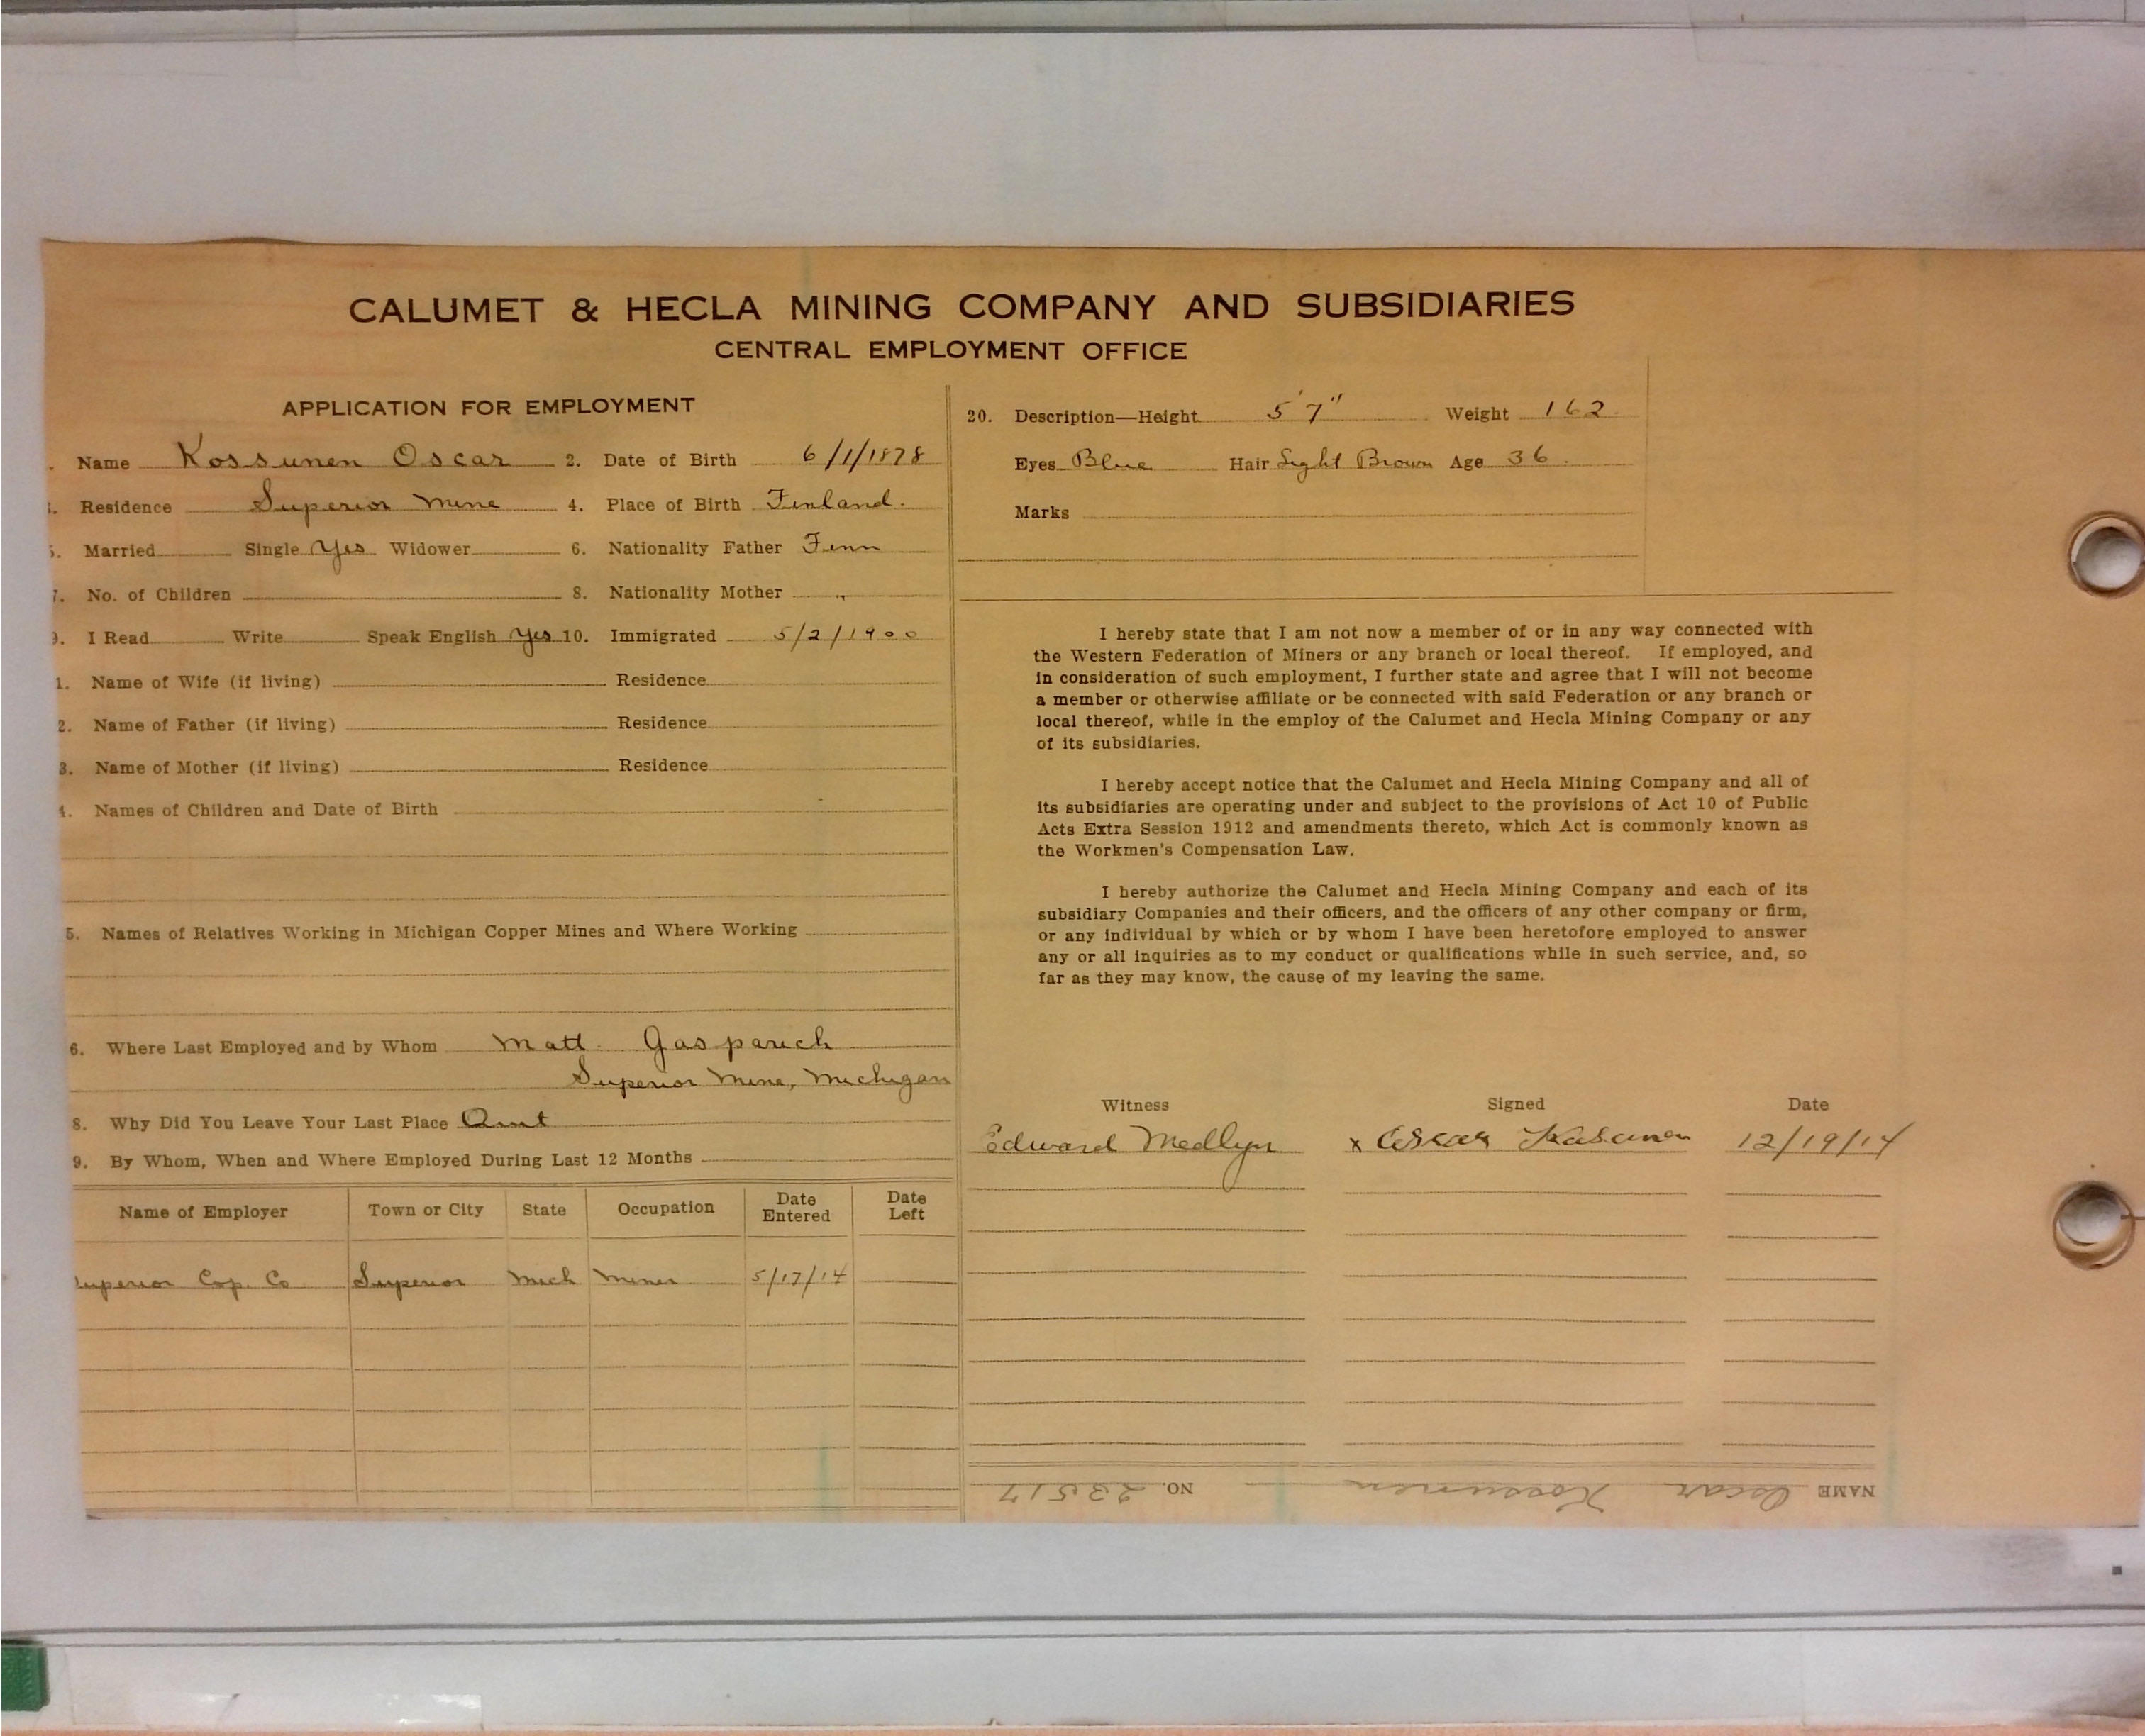 CALUMET & HECLA MINING COMPANY AND SUBSIDIARIES
CENTRAL EMPLOYMENT OFFICE
APPLICATION FOR EMPLOYMENT
. Name Kossunen Oscar 2. Date of Birth 6/1/1878
. Residence Superior Mine 4. Place of Birth Finland.
. Married Single Yes Widower 6. Nationality Father Finn
7. No. of Children 8. Nationality Mother "
9. I Read Write Speak English Yes 10. Immigrated 5/2/1900
1. Name of Wife (if living) Residence
2. Name of Father (if living) Residence
3. Name of Mother (if living) Residence
4. Names of Children and Date of Birth
5. Names of Relatives Working in Michigan Copper Mines and Where Working
6. Where Last Employed and by Whom Matt. Gasparich
Superior Mine, Michigan
8. Why Did You Leave Your Last Place
9. By Whom, When and Where Employed During Last 12 Months
Name of Employer Town or City State Occupation Date Entered Date Left
uperior Cop. Co Superior Mich Miner 5/17/14
20. Description—Height 5'7" Weight 162
Eyes Blue Hair Light Brown Age 36.
Marks
I hereby state that I am not now a member of or in any way connected with
the Western Federation of Miners or any branch or local thereof. If employed, and
in consideration of such employment, I further state and agree that I will not become
a member or otherwise affiliate or be connected with said Federation or any branch or
local thereof, while in the employ of the Calumet and Hecla Mining Company or any
of its subsidiaries.
I hereby accept notice that the Calumet and Hecla Mining Company and all of
its subsidiaries are operating under and subject to the provisions of Act 10 of Public
Acts Extra Session 1912 and amendments thereto, which Act is commonly known as
the Workmen's Compensation Law.
I hereby authorize the Calumet and Hecla Mining Company and each of its
subsidiary Companies and their officers, and the officers of any other company or firm,
or any individual by which or by whom I have been heretofore employed to answer
any or all inquiries as to my conduct or qualifications while in such service, and, so
far as they may know, the cause of my leaving the same.
Witness Signed Date
Edward Medlyn x Oskar Kasunen 12/19/14
NAME Oscar Kossunen NO. 23517